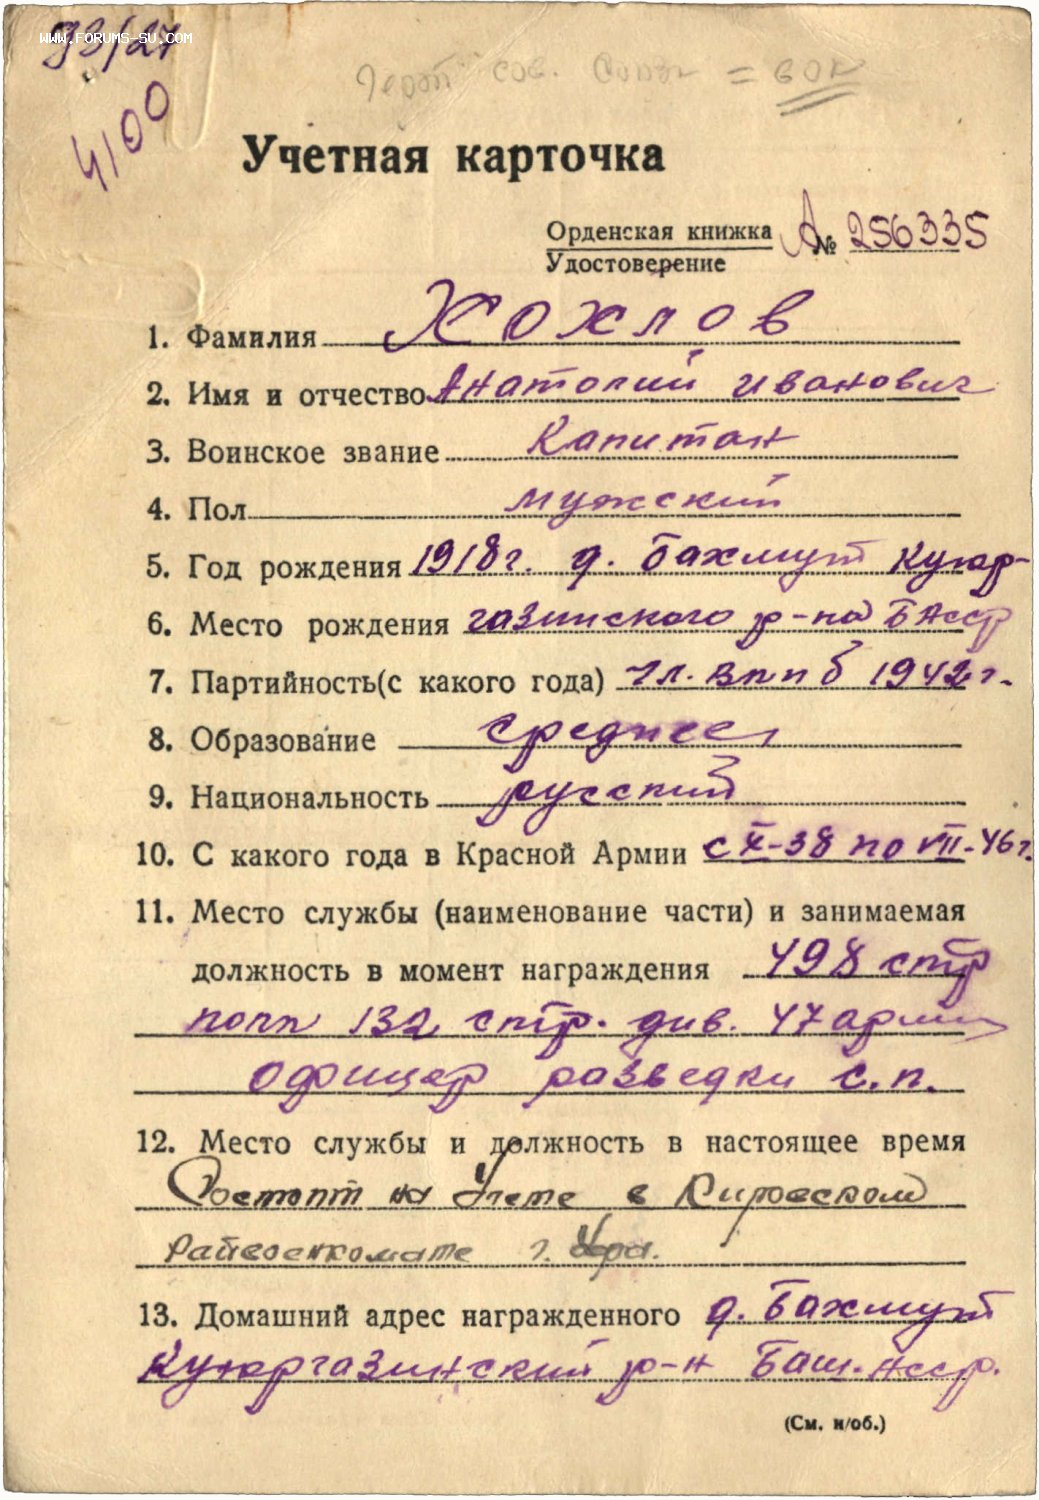 93/27
WWW.FORUMS-SU.COM
4100
Герой Сов. Союза =
Учетная карточка
Орденская книжка А № 256335
Удостоверение
1. Фамилия Хохлов
2. Имя и отчество Анатолий Иванович
3. Воинское звание Капитан
4. Пол мужской
5. Год рождения 1918 г. д. Бахмут Куюр-
6. Место рождения газинского р-на БАССР
7. Партийность (с какого года) Чл. ВКПб 1942 г.
8. Образование среднее
9. Национальность русский
10. С какого года в Красной Армии с X-38 по VII-46 г.
11. Место службы (наименование части) и занимаемая
должность в момент награждения 498 стр
полк 132 стр. див. 47 армии
офицер разведки с.п.
12. Место службы и должность в настоящее время
Состоит на Учете в Кировском
Райвоенкомате г.
13. Домашний адрес награжденного д. Бахмут
Куюргазинский р-н Баш. АССР.
(См. н/об.)